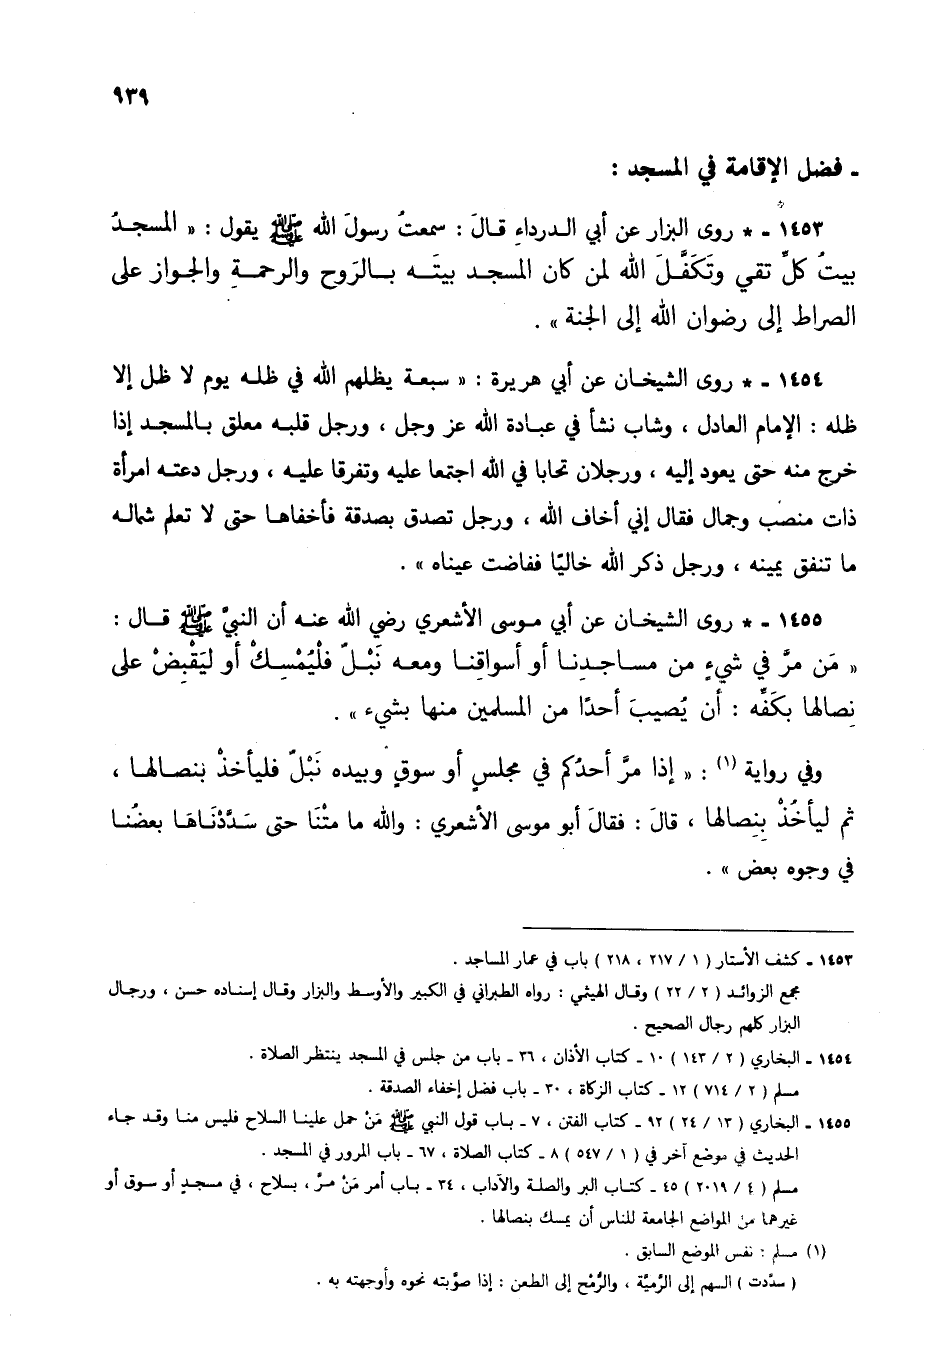 ٩٣٩
ـ فضل الإقامة في المسجد :
١٤٥٣ ـ * روى البزار عن أبي الدرداءِ قالَ : سمعتُ رسولَ الله ﷺ يقول : « المسجدُ
بيتُ كلِّ تقي وتَكَفَّلَ الله لمن كان المسجد بيتَه بالرَوح والرحمةِ والجواز على
الصراط إلى رضوان الله إلى الجنة » .
١٤٥٤ ـ * روى الشيخان عن أبي هريرة : « سبعة يظلهم الله في ظله يوم لا ظل إلا
ظله : الإمام العادل ، وشاب نشأ في عبادة الله عز وجل ، ورجل قلبه معلق بالمسجد إذا
خرج منه حتى يعود إليه ، ورجلان تحابا في الله اجتمعا عليه وتفرقا عليه ، ورجل دعته امرأة
ذات منصب وجمال فقال إني أخاف الله ، ورجل تصدق بصدقة فأخفاها حتى لا تعلم شماله
ما تنفق يمينه ، ورجل ذكر الله خاليًا ففاضت عيناه » .
١٤٥٥ ـ * روى الشيخان عن أبي موسى الأشعري رضي الله عنه أن النبيَّ ﷺ قال :
« مَن مرَّ في شيءٍ من مساجدِنا أو أسواقِنا ومعه نَبْلٌ فلْيُمْسِكْ أو ليَقْبِضْ على
نِصالها بكَفِّه : أن يُصيبَ أحدًا من المسلمين منها بشيء » .
وفي رواية (١) : « إذا مرَّ أحدُكم في مجلسٍ أو سوقٍ وبيده نَبْلٌ فليأخذْ بنصالها ،
ثم ليأخُذْ بِنِصالها ، قالَ : فقالَ أبو موسى الأشعري : والله ما متْنَا حتى سَدَّدْنَاهَا بعضُنا
في وجوه بعض » .
١٤٥٣ ـ كشف الأستار ( ١ / ٢١٧ ، ٢١٨ ) باب في عمار المساجد .
مجمع الزوائد ( ٢ / ٢٢ ) وقال الهيثمي : رواه الطبراني في الكبير والأوسط والبزار وقال إسناده حسن ، ورجال
البزار كلهم رجال الصحيح .
١٤٥٤ ـ البخاري ( ٢ / ١٤٣ ) ١٠ ـ كتاب الأذان ، ٣٦ ـ باب من جلس في المسجد ينتظر الصلاة .
مسلم ( ٢ / ٧١٤ ) ١٢ ـ كتاب الزكاة ، ٣٠ ـ باب فضل إخفاء الصدقة .
١٤٥٥ ـ البخاري ( ١٣ / ٢٤ ) ٩٢ ـ كتاب الفتن ، ٧ ـ باب قول النبي ﷺ مَنْ حمل علينا السلاح فليس منا وقد جاء
الحديث في موضع آخر في ( ١ / ٥٤٧ ) ٨ ـ كتاب الصلاة ، ٦٧ ـ باب المرور في المسجد .
مسلم ( ٤ / ٢٠١٩ ) ٤٥ ـ كتاب البر والصلة والآداب ، ٣٤ ـ باب أمر مَنْ مرَّ ، بسلاح ، في مسجدٍ أو سوق أو
غيرهما من المواضع الجامعة للناس أن يمسك بنصالها .
(١) مسلم : نفس الموضع السابق .
( سدّدت ) السهم إلى الرَّميَّة ، والرُّمْح إلى الطعن : إذا صوَّبته نحوه وأوجهته به .